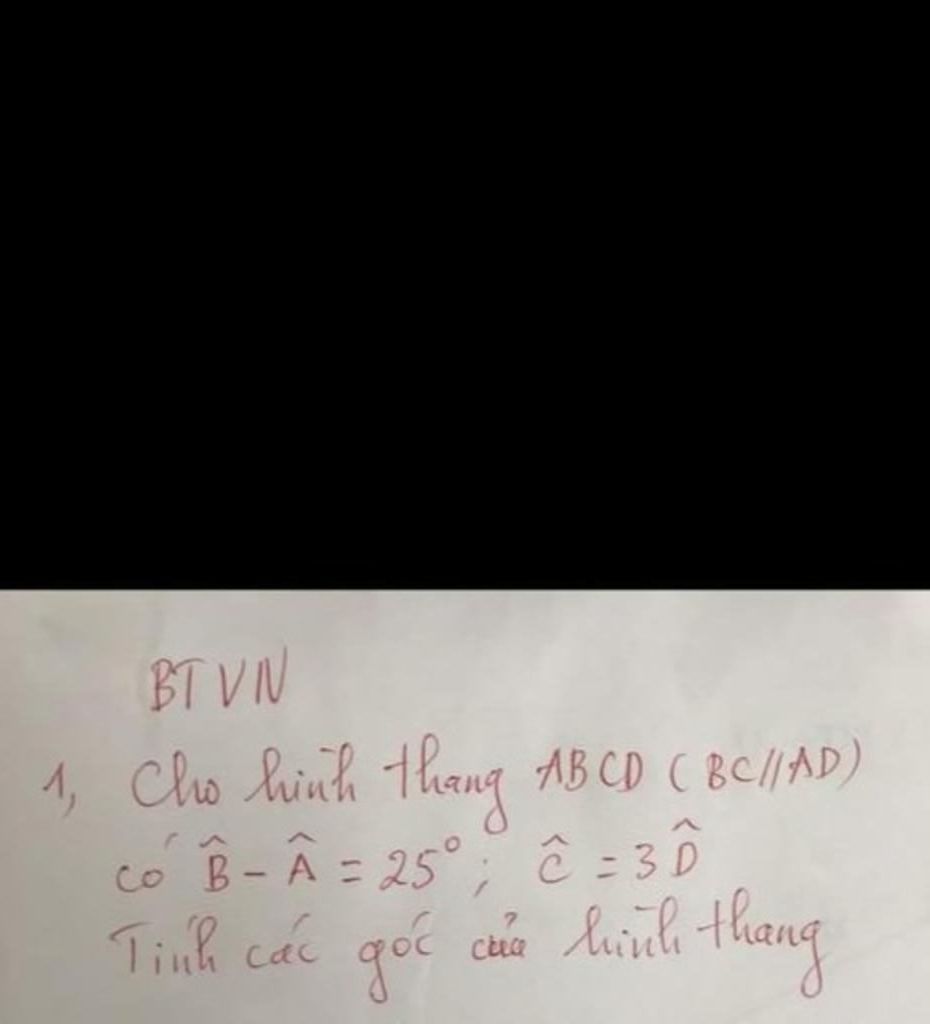 BTVN
1, Cho hình thang ABCD (BC//AD)
có B̂ - Â = 25°; Ĉ = 3D̂
Tính các góc của hình thang